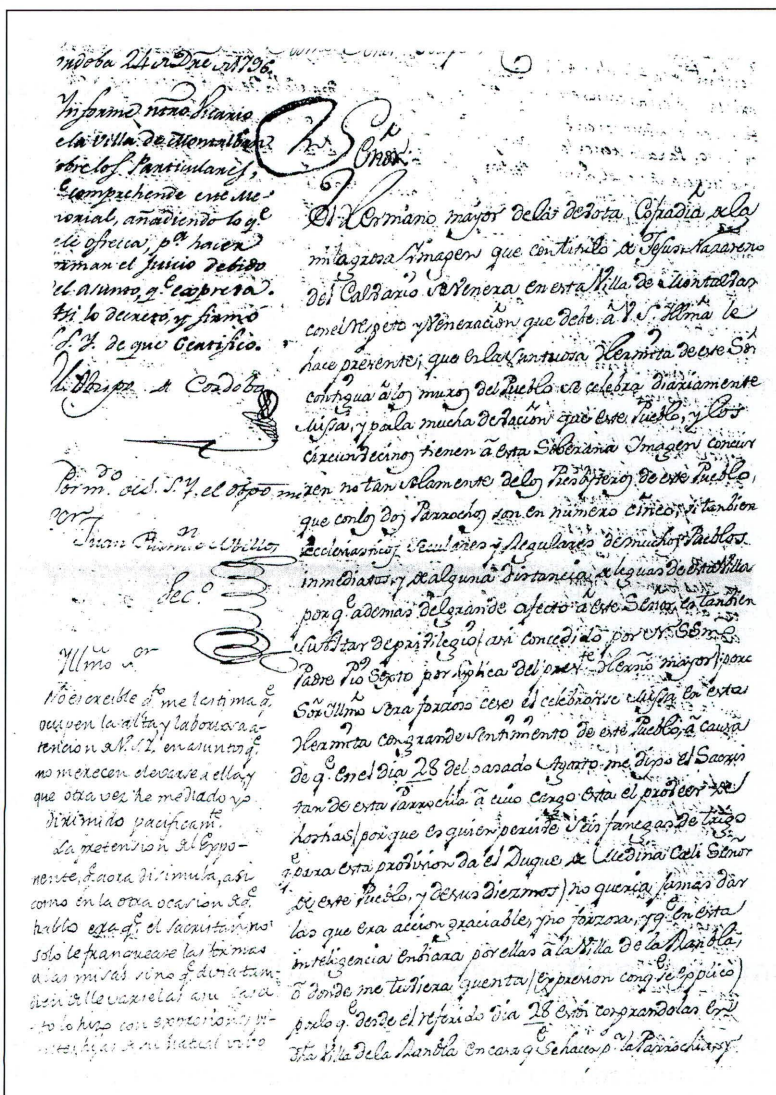 24 de Dre de 1796
Informe ntro. Vicario
de la Villa de Montalban
sobre los Particulares,
qe. comprehende este Me-
morial, añadiendo lo qe.
se le ofrezca, pa. hacer
formar el Juicio debido
el asunto, qe. expresa.
Asi lo decretó, y firmó
S. I. de que Certifico.
El Obispo de Cordoba
Por mdo. de S. I. el Obpo mi
Sor.
Juan
Seco.
Illmo Sor
No es creible qto. me lastima qe.
ocupen la alta y laboriosa a-
tencion de V. S. I. en asuntos qe.
no merecen elevarse a ella, y
que otra vez he mediado yo
dirimido pacificamte.
La pretension del Expo-
nente, qe. aora disimula, asi
como en la otra ocasion de qe.
hablo era qe. el sacristan no
solo le franquease las formas
a las misas sino qe. devia tam-
bien llevarselas a su casa
lo hizo con expresiones
hijas de su natural vivo
Señor
El Hermano mayor de la devota Cofradia de la
milagrosa Ymagen que con titulo de Jesus Nazareno
del Calvario se Venera en esta Villa de Montalvan
con el respeto y Veneracion que debe â V. S. Illma. le
hace presente, que en la Suntuosa Hermita de este Sor.
contigua â los muros del Pueblo se celebra diariamente
Missa, y por la mucha devocion que este Pueblo, y los
circunvecinos tienen â esta Soberana Ymagen concur
ren no tan solamente de los Presbyteros de este Pueblo,
que con los dos Parrochos son en numero cinco, si tambien
Ecclesiasticos Seculares y Regulares de muchos Pueblos
inmediatos y de alguna distancia de leguas de esta Villa
por qe. ademas del grande afecto â este Señor, es tambien
su Altar de privilegio/ asi concedido por N. SSmo.
Padre Pio Sexto por suplica del preste. Hermo. mayor/ pero
Sor. Illmo. sera forzoso cese el celebrarse Missa en esta
Hermita con grande sentimiento de este Pueblo, â causa
de qe. en el dia 28 del pasado Agosto me dixo el Sacris
tan de esta Parrochia â cuio cargo esta el proveer de
hostias/ por que es quien percive seis fanegas de trigo
qe. para esta provision da el Duque de Medina Celi Señor
de este Pueblo, y de sus diezmos/ no queria jamas dar
las que era accion graciable, y no forzosa, y qe. en esta
inteligencia enbiara por ellas â la Villa de la Rambla,
ô donde me tubiera quenta/ expresion con qe. se explicô/
por lo qe. desde el referido dia 28 estoy comprandolas en
dha Villa de la Rambla en casa qe. se hacen pa. la Parrochia, y